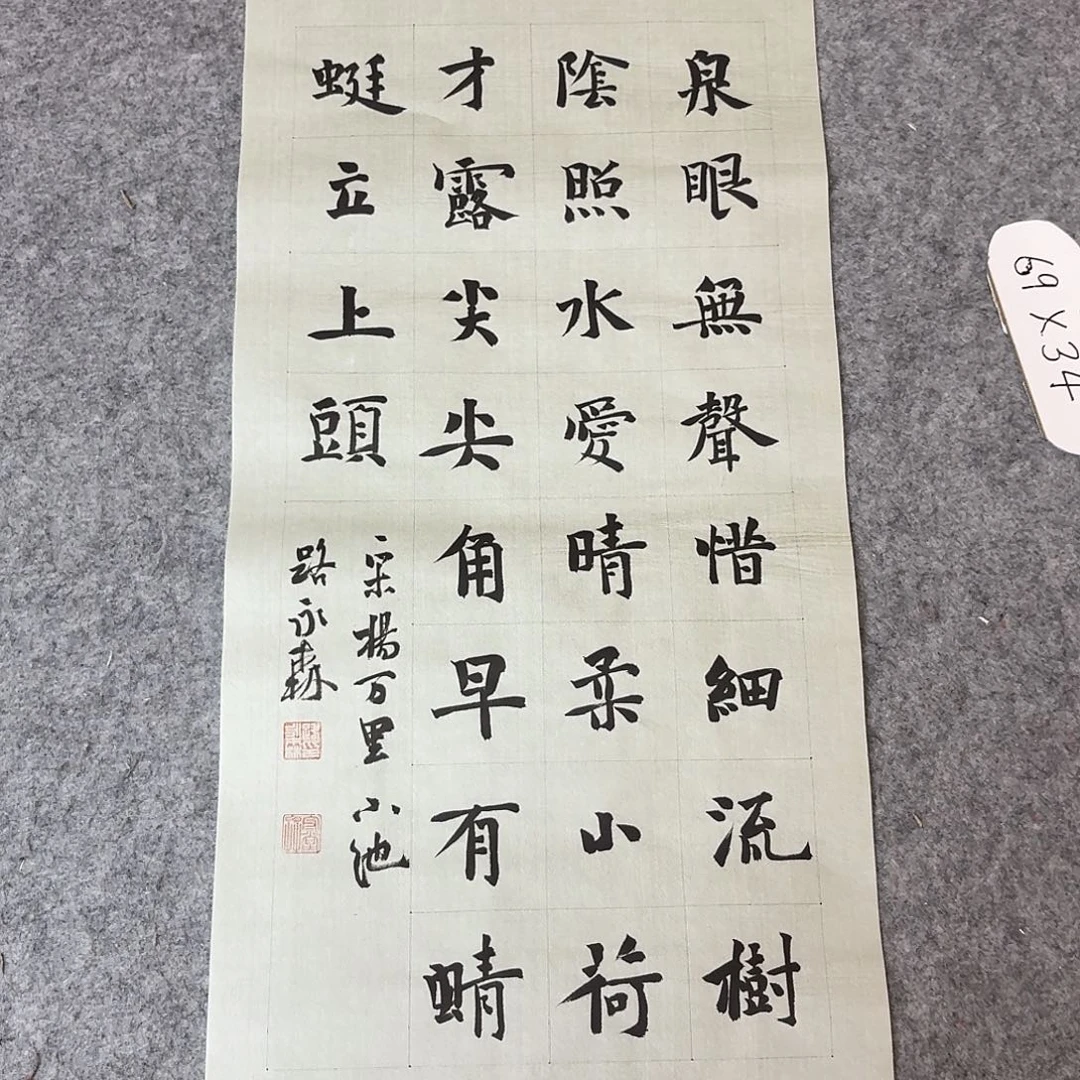 泉眼無聲惜細流樹
陰照水愛晴柔小荷
才露尖尖角早有蜻
蜓立上頭
宋楊万里 小池
路永森
69×34